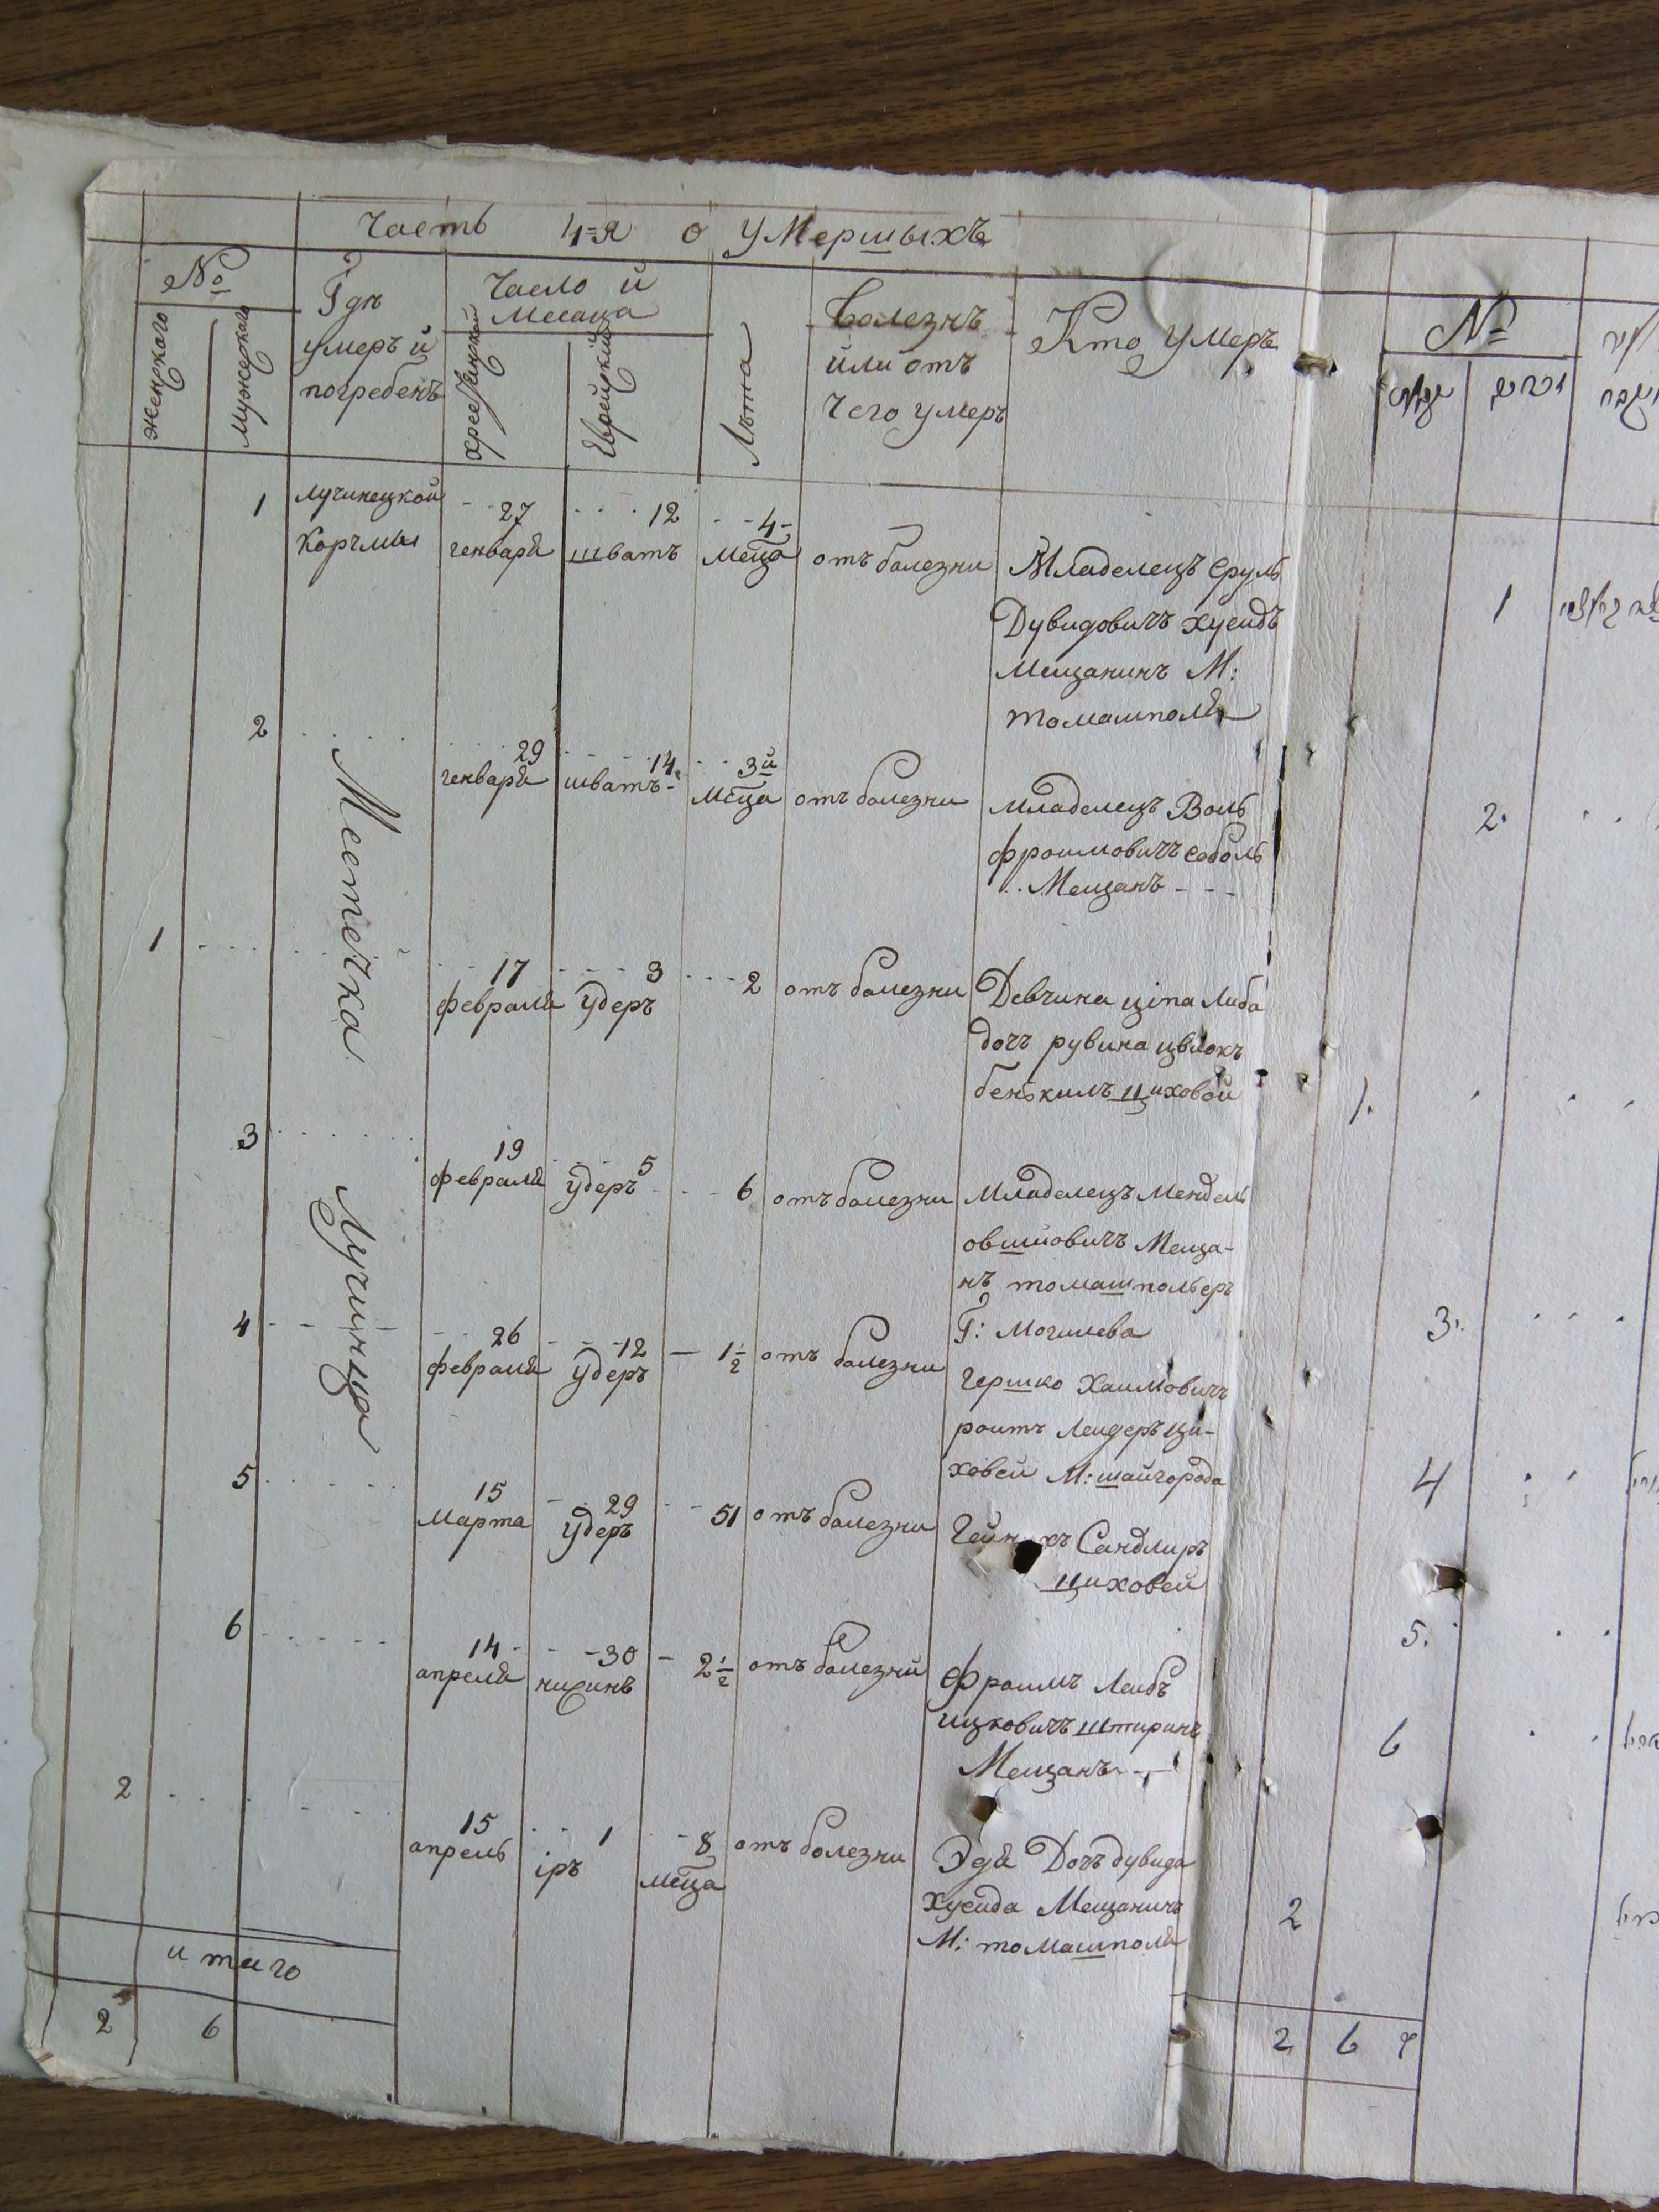 Часть 4=я о умершыхъ
№
Женскаго
Мужескаго
Гдѣ
умеръ й
погребенъ
Число й
Месаца
Еврейский
Лѣта
Болезнъ
или отъ
чего умеръ
Кто умеръ
1
лучинецкой
Корчмы
27
генваря
12
шватъ
4
Меца
отъ болезни
Младенецъ Сруль
Дувидовичъ хусидъ
мещанинъ М:
томашполя
2
Местечка
Лучинца
29
генваря
14
шватъ
3й
меца
отъ болезни
младенецъ Воль
фроимовичъ соболь
Мещанъ
1
17
февраля
3
удеръ
2
отъ болезни
Девчина ціпа Либа
дочъ рувина
цѣховой
3
19
февраля
5
удеръ
6
отъ болезни
Младенецъ Мендель
овшиовичъ Меща-
нъ томашпольеръ
Г: Могилева
4
26
февраля
12
удеръ
1½
отъ болезни
Гершко Хаимовичъ
роитъ лендеръ ци-
ховей М: шайгорода
5
15
Марта
29
удеръ
51
отъ болезни
Сандлиръ
циховей
6
14
апреля
30
нисинъ
2½
отъ болезни
фроимъ Леибъ
ицковичъ
Мещанъ
2
15
апрель
1
іръ
8
меца
отъ болезни
Эдя Дочъ дувида
хусида Мещанинъ
М: томашполя
итаго
2 6
№
1
2.
1.
3.
4
5.
6
2
2 6